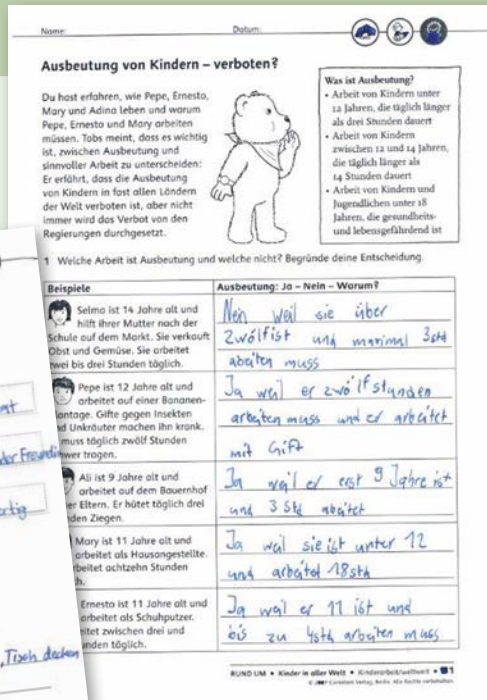 Name:
Datum:
Ausbeutung von Kindern – verboten?
Du hast erfahren, wie Pepe, Ernesto,
Mary und Adina leben und warum
Pepe, Ernesto und Mary arbeiten
müssen. Tobs meint, dass es wichtig
ist, zwischen Ausbeutung und
sinnvoller Arbeit zu unterscheiden:
Er erfährt, dass die Ausbeutung
von Kindern in fast allen Ländern
der Welt verboten ist, aber nicht
immer wird das Verbot von den
Regierungen durchgesetzt.
Was ist Ausbeutung?
• Arbeit von Kindern unter
12 Jahren, die täglich länger
als drei Stunden dauert
• Arbeit von Kindern
zwischen 12 und 14 Jahren,
die täglich länger als
14 Stunden dauert
• Arbeit von Kindern und
Jugendlichen unter 18
Jahren, die gesundheits-
und lebensgefährdend ist
1 Welche Arbeit ist Ausbeutung und welche nicht? Begründe deine Entscheidung.
Beispiele
Ausbeutung: Ja – Nein – Warum?
Selma ist 14 Jahre alt und
hilft ihrer Mutter nach der
Schule auf dem Markt. Sie verkauft
Obst und Gemüse. Sie arbeitet
zwei bis drei Stunden täglich.
Nein weil sie über
zwölf ist und maximal 3std
abeiten muss
Pepe ist 12 Jahre alt und
arbeitet auf einer Bananen-
plantage. Gifte gegen Insekten
und Unkräuter machen ihn krank.
muss täglich zwölf Stunden
wer tragen.
Ja weil er zwölf stunden
arbeiten muss und er arbeitet
mit Gift
Ali ist 9 Jahre alt und
arbeitet auf dem Bauernhof
er Eltern. Er hütet täglich drei
den Ziegen.
Ja weil er erst 9 Jahre ist
und 3 Std abeitet
Mary ist 11 Jahre alt und
arbeitet als Hausangestellte.
rbeitet achtzehn Stunden
h.
Ja weil sie ist unter 12
und arbeitet 18std
Ernesto ist 11 Jahre alt und
arbeitet als Schuhputzer.
itet zwischen drei und
nden täglich.
Ja weil er 11 ist und
bis zu 4std arbeiten muss
der Freundin
Tisch decken
RUND UM • Kinder in aller Welt • Kinderarbeit/weltweit • 1